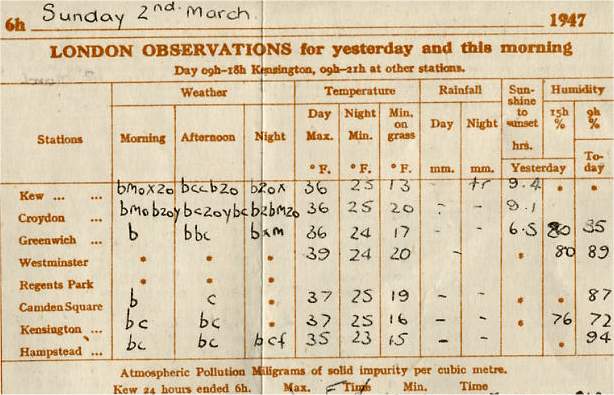 6h Sunday 2nd. March. 1947
LONDON OBSERVATIONS for yesterday and this morning
Day 09h-18h Kensington, 09h-21h at other stations.
Stations Weather Temperature Rainfall Sun-shine to sunset hrs. Humidity
Morning Afternoon Night Day Max. Night Min. Min. on grass Day Night 15h % 9h %
° F. ° F. ° F. mm. mm. Yesterday To-day
Kew ... ... bm0x20 bccb20 b20x 36 25 13 - tr 9.4 * *
Croydon ... 36 25 20 - - 9.1
Greenwich ... b bbc bxm 36 24 17 - - 6.5 80 35
Westminster * * * 39 24 20 - * 80 89
Regents Park * * *
Camden Square b c 37 25 19 - - * * 87
Kensington ... bc bc 37 25 16 - - * 76 72
Hampstead ... bc bc bcf 35 23 15 - - * 94
Atmospheric Pollution Miligrams of solid impurity per cubic metre.
Kew 24 hours ended 6h. Max. Time Min. Time